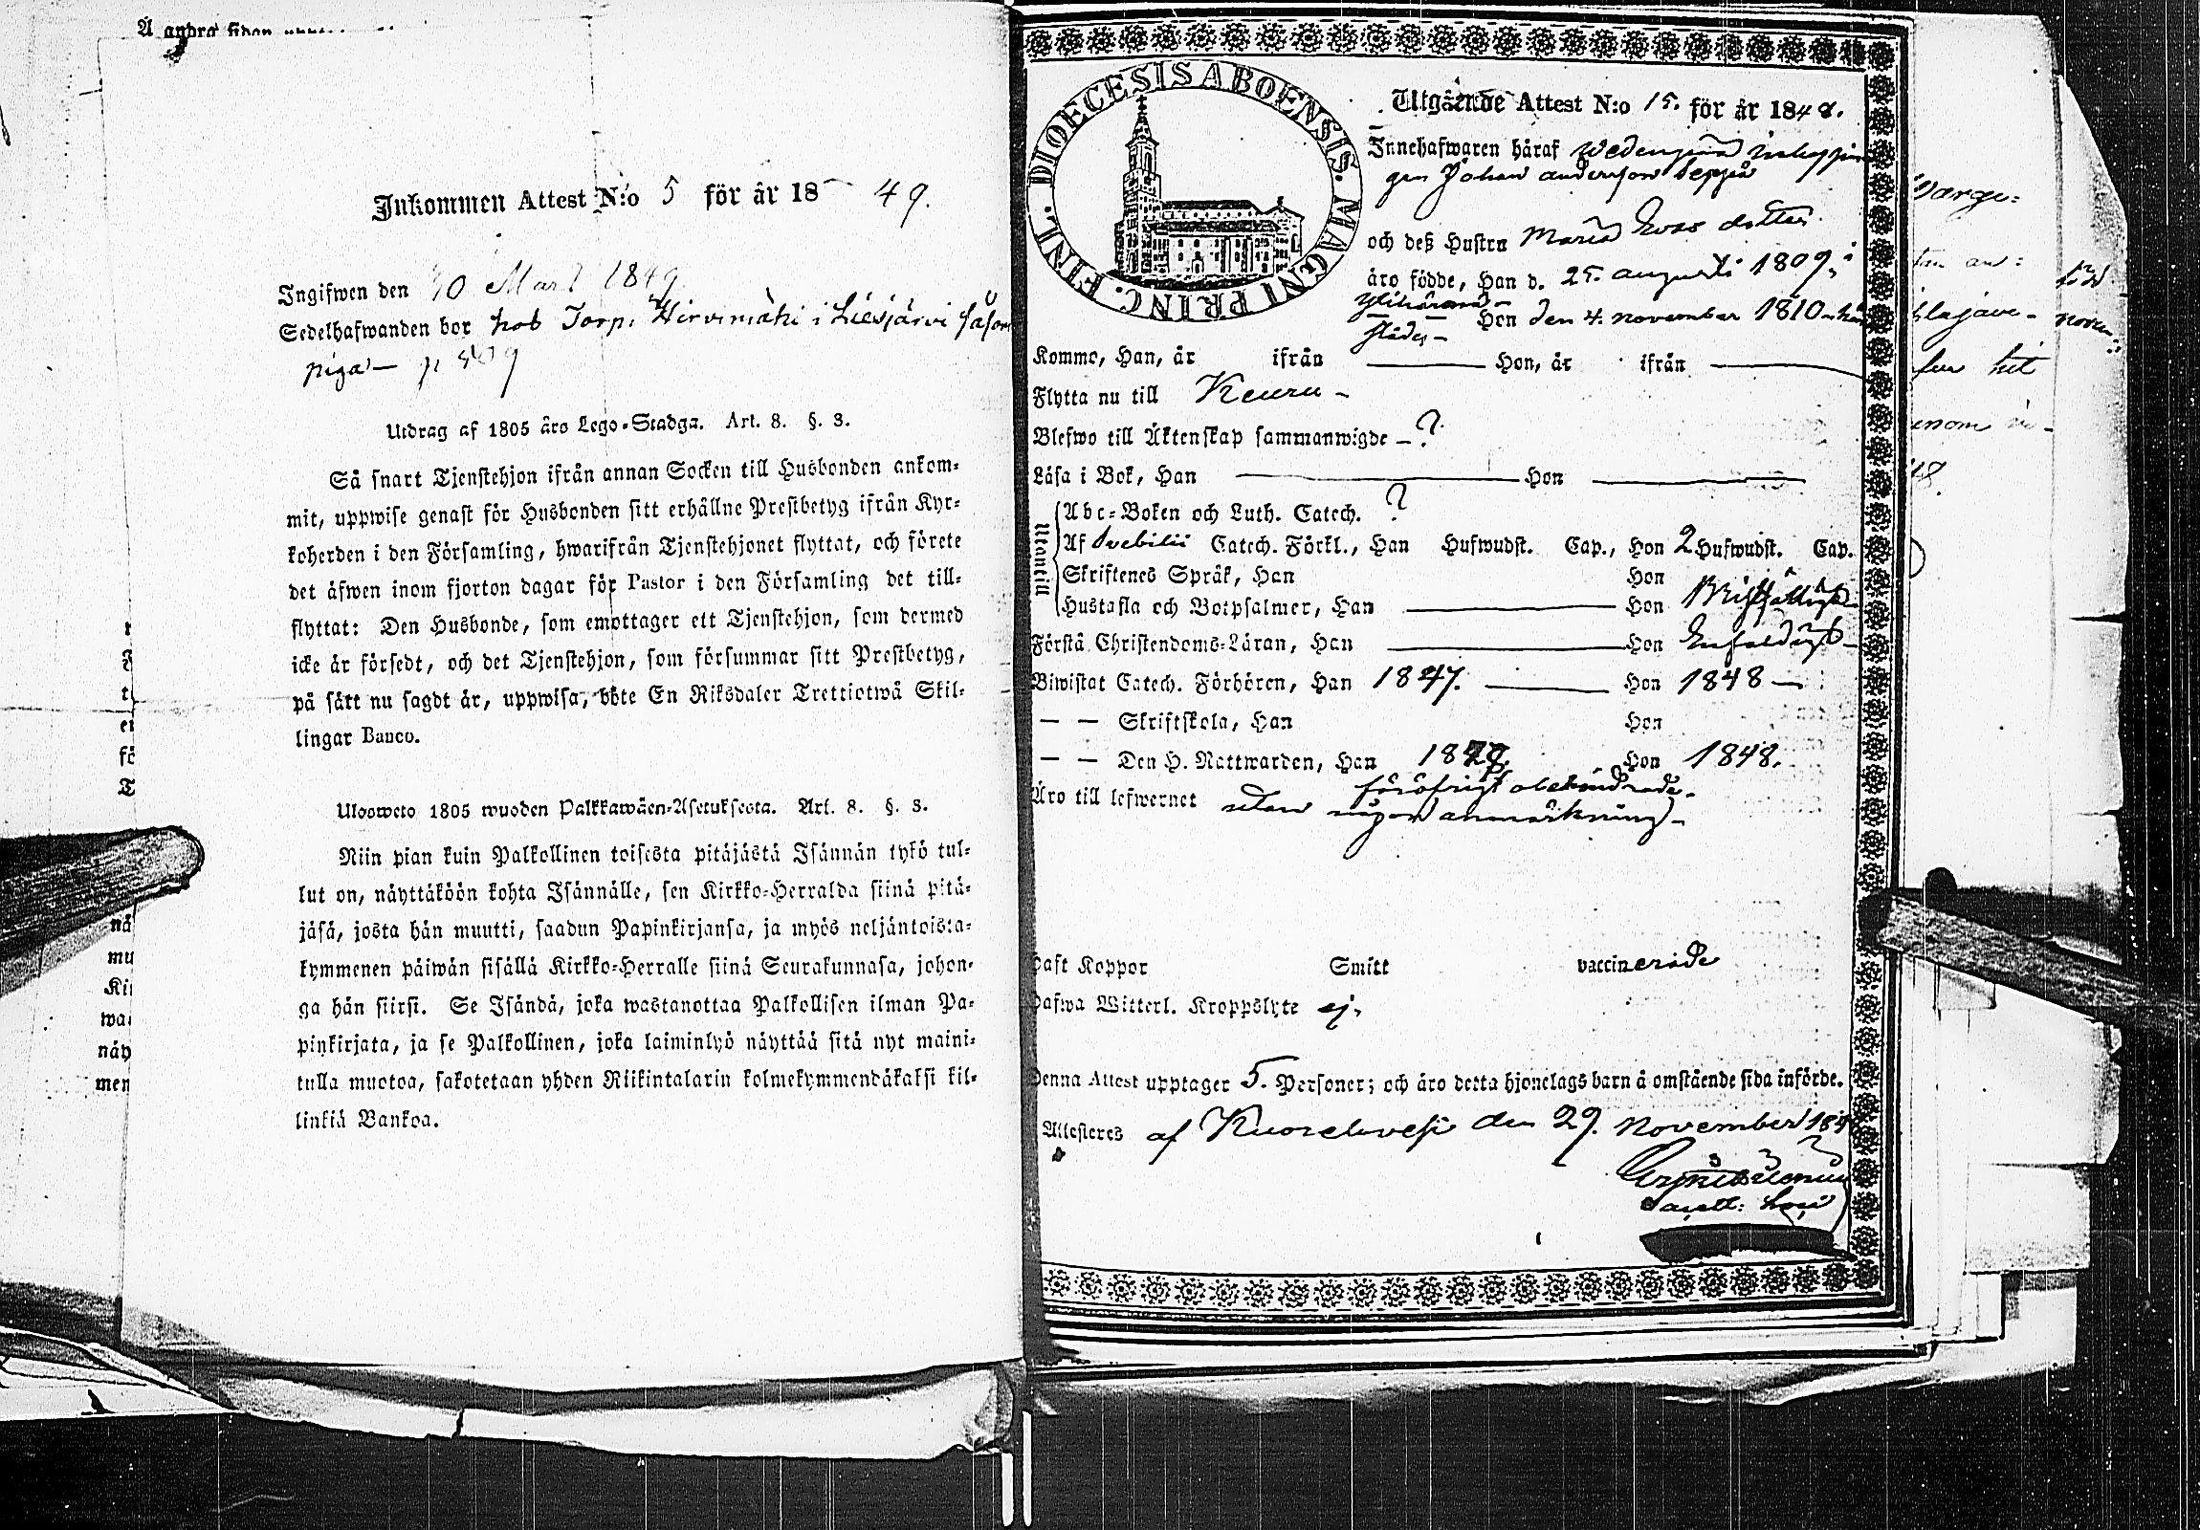 Å andra sidan
Inkommen Attest N:o 5 för år 18 49.
Ingifwen den 30 Mars 1849
Sedelhafwanden bor hos Torp. Hirvimäki i Liesjärvi såsom
piga — p
Utdrag af 1805 års Lego-Stadga. Art. 8. §. 3.
Så snart Tjenstehjon ifrån annan Socken till Husbonden ankom-
mit, uppwise genast för Husbonden sitt erhållne Prestbetyg ifrån Kyr-
koherden i den Församling, hwarifrån Tjenstehjonet flyttat, och förete
det äfwen inom fjorton dagar för Pastor i den Församling det till-
flyttat: Den Husbonde, som emottager ett Tjenstehjon, som dermed
icke är försedt, och det Tjenstehjon, som försummar sitt Prestbetyg,
på sätt nu sagdt är, uppwisa, böte En Riksdaler Trettiotwå Skil-
lingar Banco.
Ulosweto 1805 wuoden Palkkawäen-Asetuksesta. Art. 8. §. 3.
Niin pian kuin Palkollinen toisesta pitäjästä Isännän tykö tul-
lut on, näyttäköön kohta Isännälle, sen Kirkko-Herralda siinä pitä-
jäsä, josta hän muutti, saadun Papinkirjansa, ja myös neljäntoista-
kymmenen päiwän sisällä Kirkko-Herralle siinä Seurakunnasa, johon-
ga hän siirsi. Se Isändä, joka wastanottaa Palkollisen ilman Pa-
pinkirjata, ja se Palkollinen, joka laiminlyö näyttää sitä nyt maini-
tulla muotoa, sakotetaan yhden Riikintalarin kolmekymmendäkaksi kil-
linkiä Bankoa.
DIOECESIS ABOENSIS. MAGNI PRINC. FINL.
Utgående Attest N:o 15. för år 1848.
Innehafwaren häraf
gen Johan andersson Seppä
och deß Hustru Maria Evas dotter
äro födde, Han d. 25. augusti 1809, i
Hon den 4. november 1810
Komme, Han, år ifrån — Hon, år ifrån —
Flytta nu till Keuru —
Blefwo till Äktenskap sammanwigde — ?
Läsa i Bok, Han — Hon —
Utantill
Abc-Boken och Luth. Catech. ?
Af Svebilii Catech. Förkl., Han Hufwudst. Cap., Hon 2 Hufwudst. Cap.
Skriftenes Språk, Han Hon
Hustafla och Botpsalmer, Han — Hon Bristfälligt
Förstå Christendoms-Läran, Han — Hon Enfaldigt —
Biwistat Catech. Förhören, Han 1847. — Hon 1848 —
— — Skriftskola, Han Hon
— — Den H. Nattwarden, Han 1848 Hon 1848.
föröfrigt obehindrade.
Äro till lefwernet utan någon anmärkning —
Haft Koppor Smitt vaccinerade
Hafwa Witterl. Kroppslyte ej.
Denna Attest upptager 5. Personer; och äro detta hjonelags barn å omstående sida införde.
Attesteras af Kuorehvesi den 29. November 184